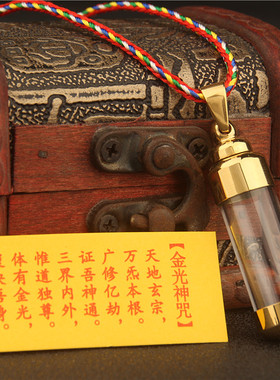 【金光神咒】
天地玄宗，
万炁本根。
广修亿劫，
证吾神通。
三界内外，
惟道独尊。
体有金光，